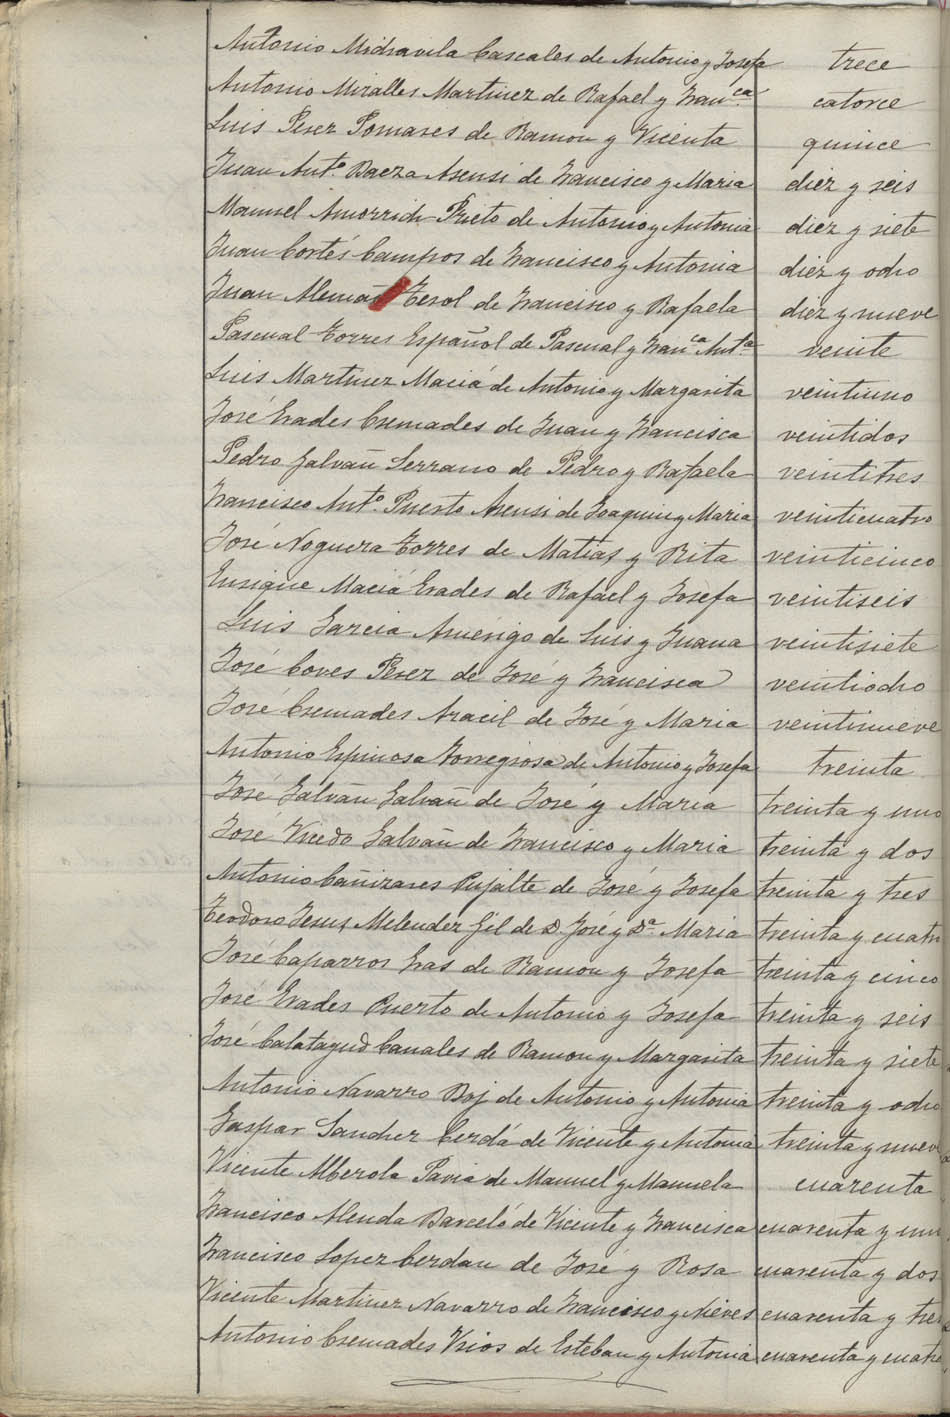 Antonio Midravila Cascales de Antonio y Josefa trece
Antonio Miralles Martinez de Rafael y Fran.ca catorce
Luis Perez Pomares de Ramon y Vicenta quince
Juan Ant.o Baeza Asensi de Francisco y Maria diez y seis
Manuel Amorrich Prieto de Antonio y Antonia diez y siete
Juan Cortés Campos de Francisco y Antonia diez y ocho
Juan Alemañ Terol de Francisco y Rafaela diez y nueve
Pascual Torres Español de Pascual y Fran.ca Ant.a veinte
Luis Martinez Maciá de Antonio y Margarita veintiuno
José Erades Cremades de Juan y Francisca veintidos
Pedro Galvañ Serrano de Pedro y Rafaela veintitres
Francisco Ant.o Puerto Asensi de Joaquin y Maria veinticuatro
José Noguera Torres de Matias y Rita veinticinco
Enrique Maciá Erades de Rafael y Josefa veintiseis
Luis Garcia Amérigo de Luis y Juana veintisiete
José Coves Perez de José y Francisca veintiocho
José Cremades Aracil de José y Maria veintinueve
Antonio Espinosa Torregrosa de Antonio y Josefa treinta
José Galvañ Galvañ de José y Maria treinta y uno
José Vicedo Galvañ de Francisco y Maria treinta y dos
Antonio Cañizares Pujalte de José y Josefa treinta y tres
Teodoro Jesus Melendez Gil de D. José y D.a Maria treinta y cuatro
José Caparros Eras de Ramon y Josefa treinta y cinco
José Erades Puerto de Antonio y Josefa treinta y seis
José Calatayud Canales de Ramon y Margarita treinta y siete
Antonio Navarro Boj de Antonio y Antonia treinta y ocho
Gaspar Sanchez Cerdá de Vicente y Antonia treinta y nueve
Vicente Alberola Pavia de Manuel y Manuela cuarenta
Francisco Alenda Barceló de Vicente y Francisca cuarenta y uno
Francisco Lopez Cerdan de José y Rosa cuarenta y dos
Vicente Martinez Navarro de Francisco y Nieves cuarenta y tres
Antonio Cremades Urios de Esteban y Antonia cuarenta y cuatro